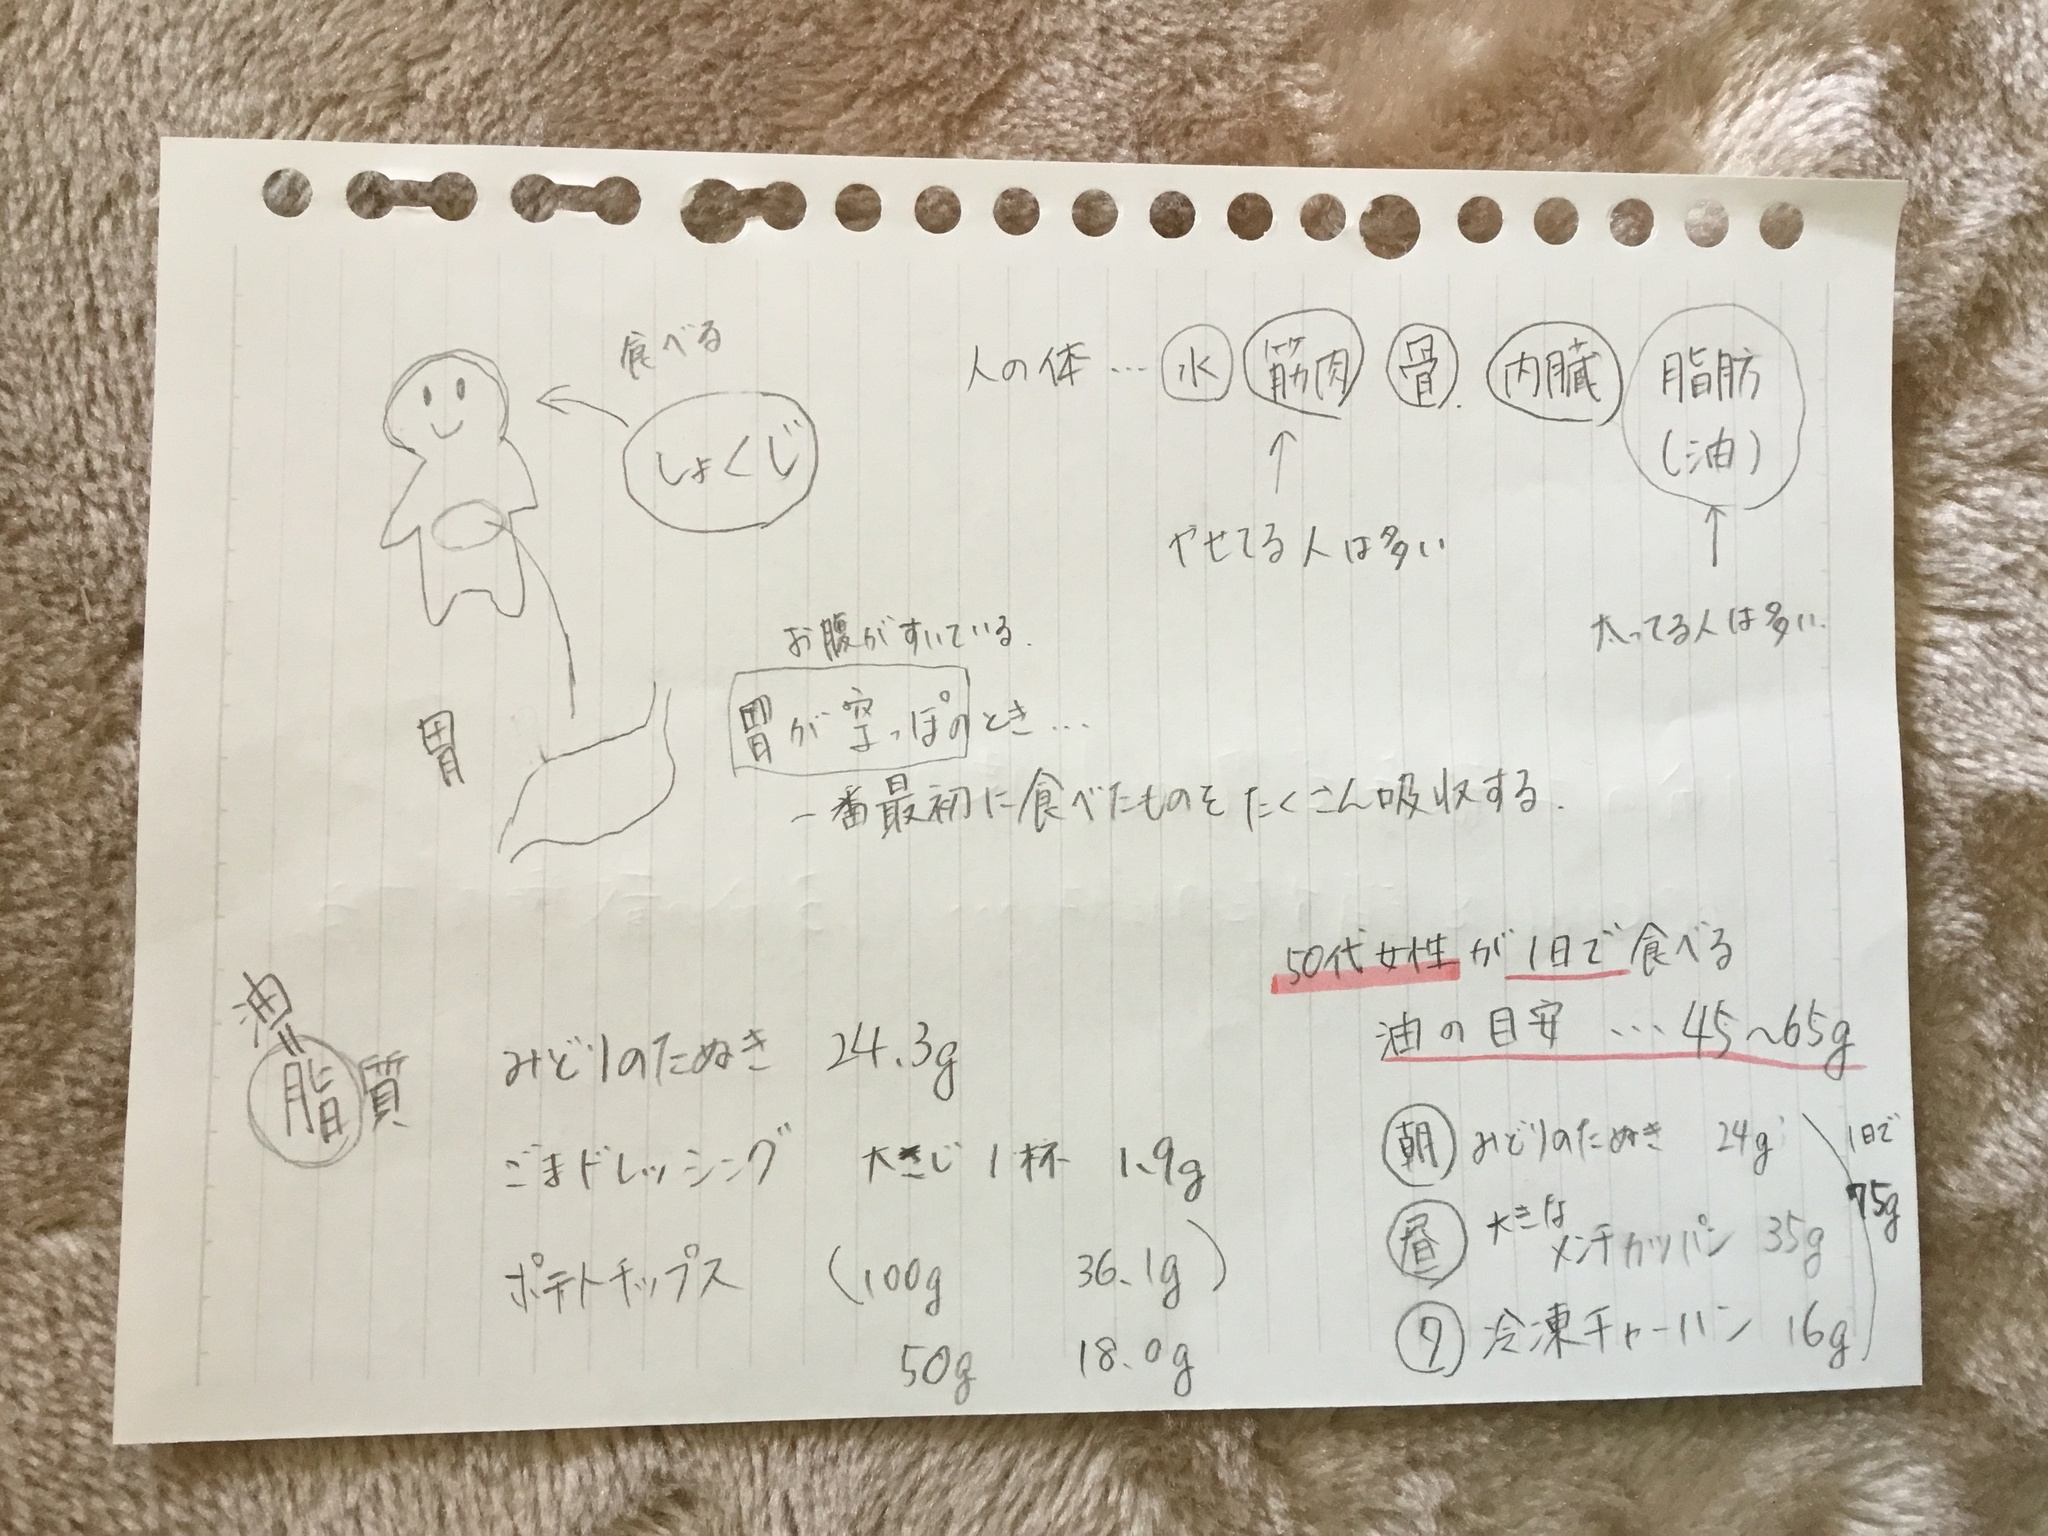 食べる
しょくじ
人の体…水 筋肉 骨 内臓 脂肪
(油)
やせてる人は多い
太ってる人は多い
お腹がすいている
胃
胃が空っぽのとき…
一番最初に食べたものをたくさん吸収する.
50代女性が1日で食べる
油の目安 …45~65g
油=
脂質
みどりのたぬき 24.3g
ごまドレッシング 大さじ1杯 1.9g
ポテトチップス (100g 36.1g)
50g 18.0g
朝 みどりのたぬき 24g
昼 大きなメンチカツパン 35g
夕 冷凍チャーハン 16g
1日で
75g